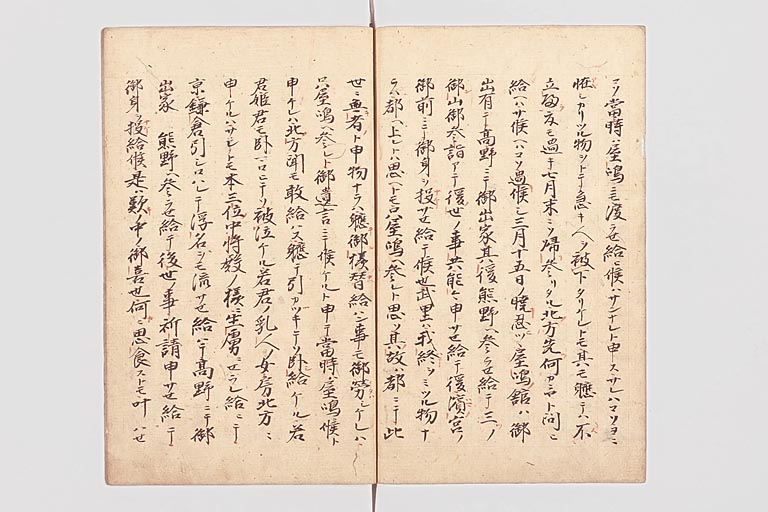 コソ當時ハ屋嶋ニモ渡ラセ給ニ候ハサンナレト申スサレハコソヨニ
恠シカリツル物ヲトテ急キ人ヲ被下タリケレトモ其モ軈テハ不
立歸夜モ過キ七月末ニソ歸參リタル北方先何カニヤト問ニ
給ヘハサ候ヘハコソ過候シ三月十五日ノ曉忍ツヽ屋嶋館ヲハ御
出有テ髙野ニテ御出家其後熊野ヘ參ラセ給テ三ノ
御山御參詣アテ後世ノ事共能々申サセ給テ後濱宮ノ
御前ニテ御身ヲ投サセ給テ候也武里ハ我終ヲミツル物ナ
ラハ都ヘ上レトハ思ヘトモ只屋嶋ヘ參レト思ソ其故ハ都ニテ此
世ニ無者ト申物ナラハ軈御樣替給ハン事モ御勞シケレハ
只屋嶋ヘ參レト御遺言ニテ候ケルト申テ當時ハ屋嶋ニ候ト
申ケレハ北方聞モ敢給ハス軈テ引カツキテソ臥給ケル若
君姫君モ臥マロヒテソ被泣ケル若君ノ乳人ノ女房北方ニ
申ケルハサレトモ本三位中將殿ノ樣ニ生虜ニセラレ給ヒテ
京鎌倉引シロハレテ浮名ヲモ流サセ給ハテ髙野ニテ御
出家 熊野ヘ參ラセ給テ後世ノ事祈請申サセ給ニテ
御身ヲ投給候是ハ歎ノ中ノ御喜也何ニ思食ストモ叶ハセ